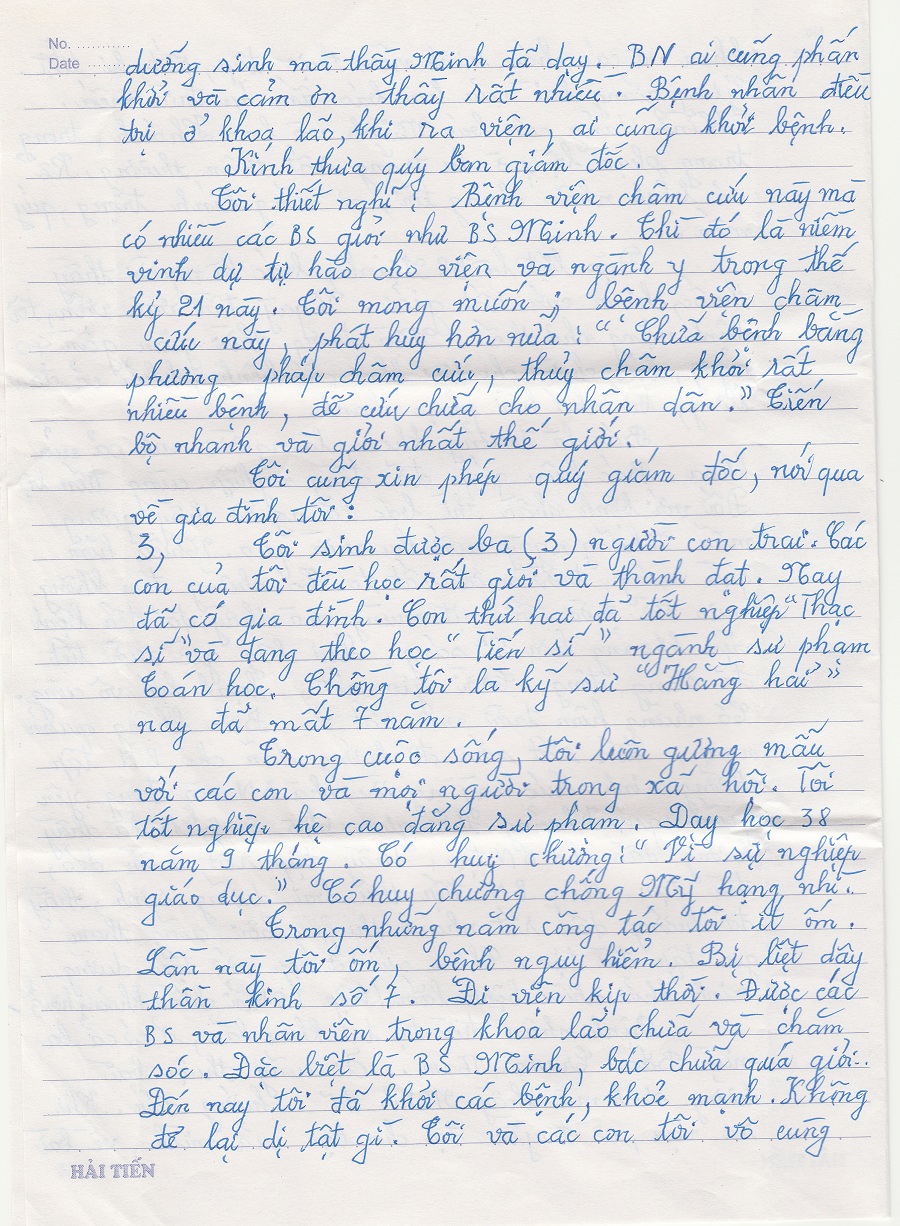 No. ...........
Date ........
dưỡng sinh mà thầy Minh đã dạy. BN ai cũng phấn
khởi và cảm ơn thầy rất nhiều. Bệnh nhân điều
trị ở khoa lão, khi ra viện, ai cũng khỏi bệnh.
Kính thưa quý ban giám đốc.
Tôi thiết nghĩ! Bệnh viện châm cứu này mà
có nhiều các BS giỏi như BS Minh. Thì đó là niềm
vinh dự tự hào cho viện và ngành y trong thế
kỷ 21 này. Tôi mong muốn; bệnh viện châm
cứu này, phát huy hơn nữa: "Chữa bệnh bằng
phương pháp châm cứu, thuỷ châm khỏi rất
nhiều bệnh, để cứu chữa cho nhân dân." Tiến
bộ nhanh và giỏi nhất thế giới.
Tôi cũng xin phép quý giám đốc, nói qua
về gia đình tôi:
3, Tôi sinh được ba (3) người con trai. Các
con của tôi đều học rất giỏi và thành đạt. Nay
đã có gia đình. Con thứ hai đã tốt nghiệp "Thạc
sĩ" và đang theo học "Tiến sĩ" ngành sư phạm
Toán học. Chồng tôi là kỹ sư "Hằng hải"
nay đã mất 7 năm.
Trong cuộc sống, tôi luôn gương mẫu
với các con và mọi người trong xã hội. Tôi
tốt nghiệp hệ cao đẳng sư phạm. Dạy học 38
năm 9 tháng. Có huy chương: "Vì sự nghiệp
giáo dục." Có huy chương chống Mỹ hạng nhì.
Trong những năm công tác tôi ít ốm.
Lần này tôi ốm, bệnh nguy hiểm. Bị liệt dây
thần kinh số 7. Đi viện kịp thời. Được các
BS và nhân viên trong khoa lão chữa và chăm
sóc. Đặc biệt là BS Minh, bác chữa quá giỏi.
Đến nay tôi đã khỏi các bệnh, khoẻ mạnh. Không
để lại dị tật gì. Tôi và các con tôi vô cùng
HẢI TIẾN